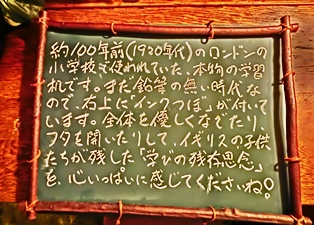 約100年前(1920年代)のロンドンの
小学校で使われていた、本物の学習
机です。また鉛筆の無い時代な
ので、右上に"インクつぼ"が付いて
います。全体を優しくなでたり、
フタを開いたりして、イギリスの子供
たちが残した「学びの残存思念」
を、心いっぱいに感じてくださいね!